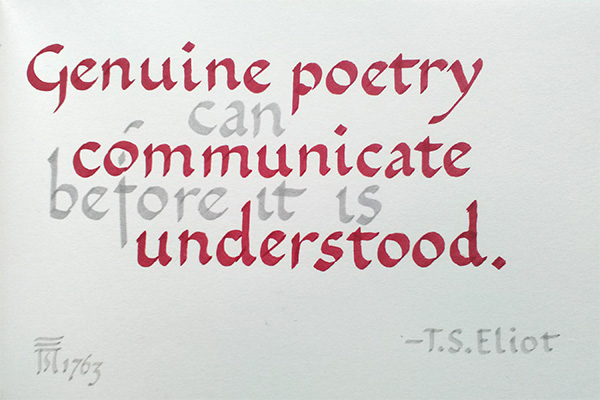 Genuine poetry
can
communicate
before it is
understood.
–T.S.Eliot
1763